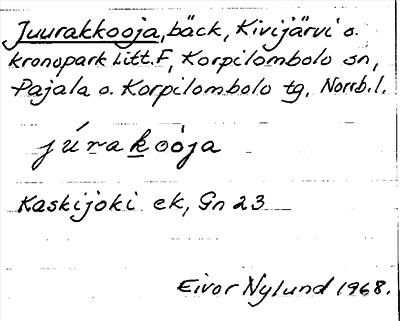 Juurakkooja, bäck, Kivijärvi o.
kronopark Litt. F, Korpilombolo sn,
Pajala o. Korpilombolo tg, Norrb. l.
júrakòja
Kaskijoki ek, Gn 23
Eivor Nylund 1968.